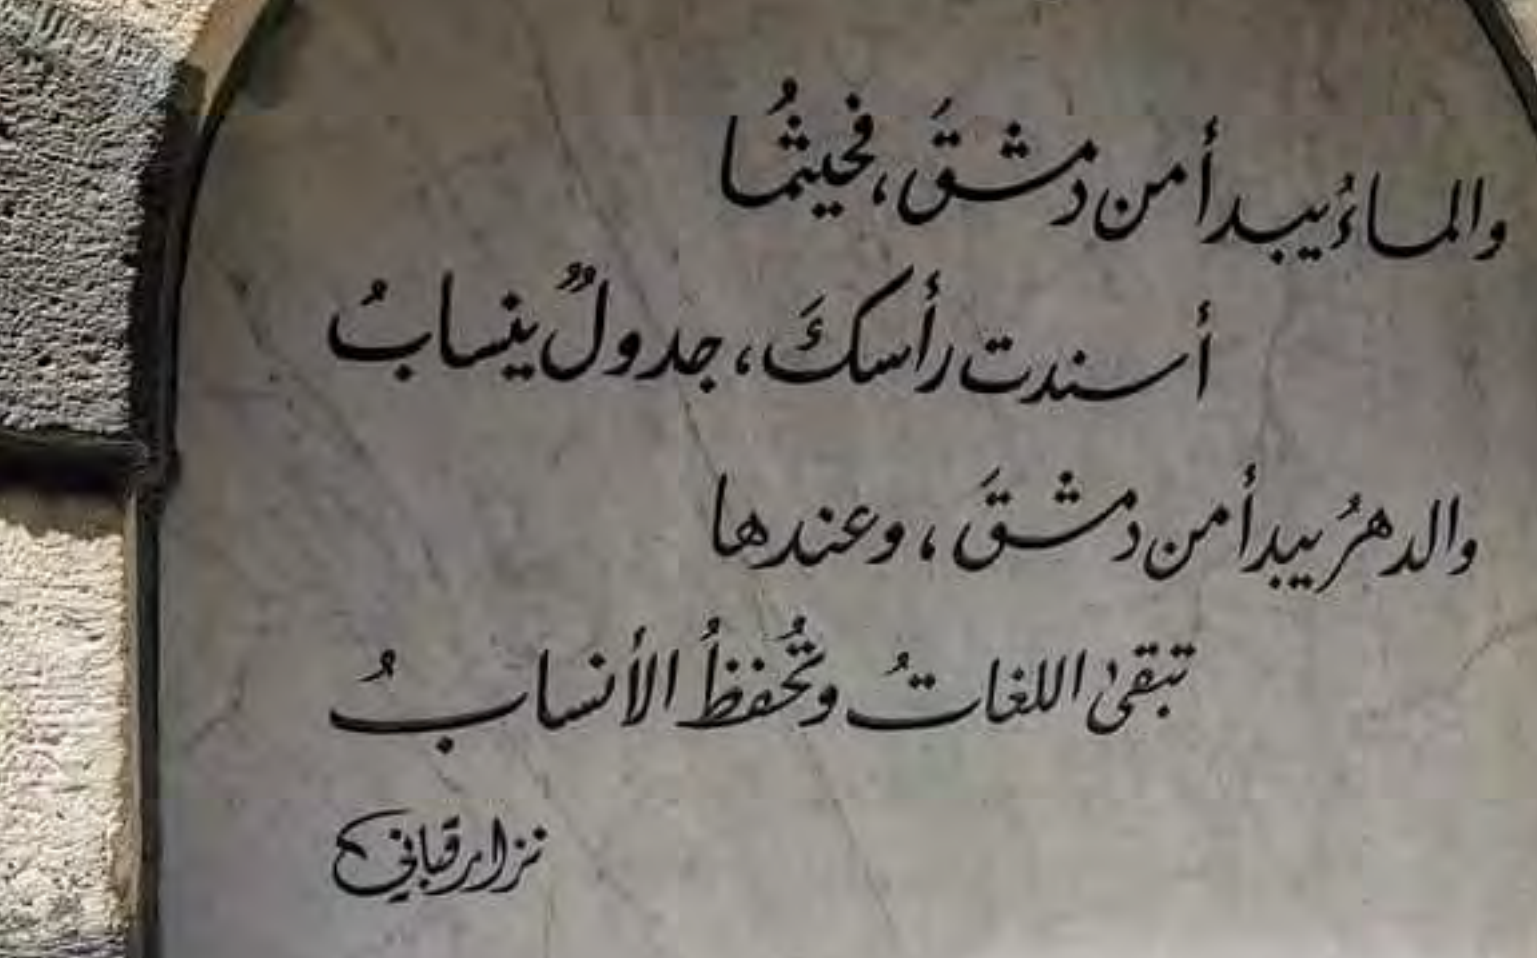 والماءُ يبدأ من دمشقَ، فحيثمُا
أسندت رأسكَ، جدولٌ ينسابُ
والدهرُ يبدأ من دمشقَ، وعندها
تبقىٰ اللغاتُ وتُحفظُ الأنسابُ
نزار قباني